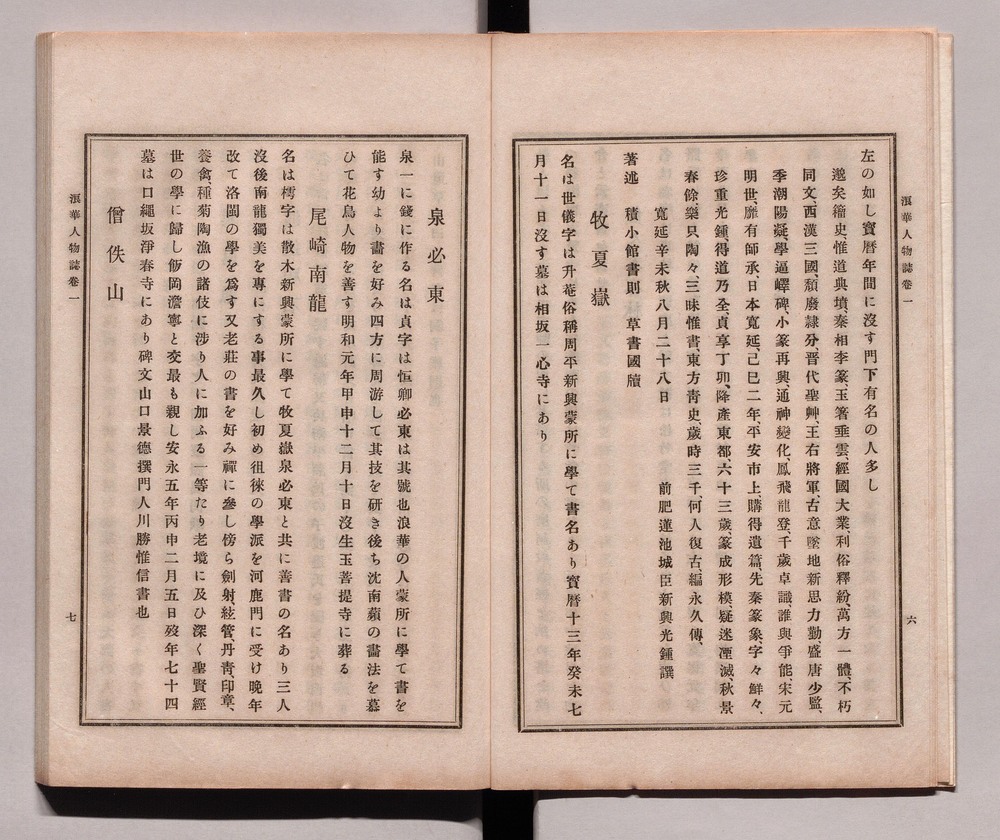 浪華人物誌卷一
六
左の如し寶暦年間に沒す門下有名の人多し
邈矣籀史惟道典墳、秦相李篆、玉箸垂雲、經國大業、利俗釋紛、萬方一體、不朽
同文、西漢三國、頽廢隷分、晋代聖艸、王右將軍、古意墜地新思力勤、盛唐少監、
季潮陽凝、學逼嶧碑、小篆再興、通神變化、鳳飛龍登、千歳卓識、誰與爭能、宋元
明世、靡有師承、日本寬延、己巳二年、平安市上、購得遺篇、先秦篆象、字々鮮々、
珍重光鍾得道乃全、貞享丁卯、降產東都、六十三歳、篆成形模、疑迷湮滅、秋景
春餘、樂只陶々、三昧惟書、東方靑史、歲時三千、何人復古、編永久傳、
寬延辛未秋八月二十八日　前肥蓮池城臣新興光鍾譔
著述　積小館書則　草書國牘
牧夏嶽
名は世儀字は升菴俗稱周平新興蒙所に學て書名あり寶暦十三年癸未七
月十一日沒す墓は相坂一心寺にあり
泉必東
泉一に錢に作る名は貞字は恒卿必東は其號也浪華の人蒙所に學て書を
能す幼より畵を好み四方に周游して其技を研き後ち沈南蘋の畵法を慕
ひて花鳥人物を善す明和元年甲申十二月十日沒生玉菩提寺に葬る
尾崎南龍
名は樗字は散木新興蒙所に學て牧夏嶽泉必東と共に善書の名あり三人
沒後南龍獨美を專にする事最久し初め徂徠の學派を河鹿門に受け晩年
改て洛閩の學を爲す又老莊の書を好み禪に參し傍ら劍射絃管、丹靑、印章、
養禽種菊陶漁の諸伎に涉り人に加ふる一等たり老境に及ひ深く聖賢經
世の學に歸し飯岡澹寧と交最も親し安永五年丙申二月五日歿年七十四
墓は口繩坂淨春寺にあり碑文山口景德撰門人川勝惟信書也
僧佚山
浪華人物誌卷一
七